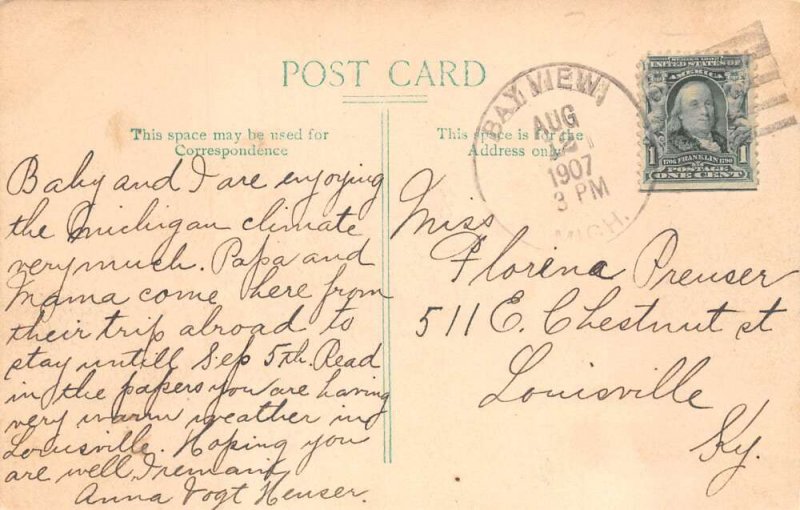 POST CARD
This space may be used for
Correspondence
Baby and I are enjoying
the Michigan climate
very much. Papa and
Mama come here from
their trip abroad to
stay untill Sep 5th. Read
in the papers you are having
very warm weather in
Louisville. Hoping you
are well, I remain,
Anna Vogt Heuser.
This space is for the
Address only
BAY VIEW,
AUG
21
1907
3 PM
MICH.
SERIES 1902
UNITED STATES OF
AMERICA
1 1706 FRANKLIN 1790 1
POSTAGE
ONE CENT
Miss
Florina Preuser
511 E. Chestnut st
Louisville
Ky.